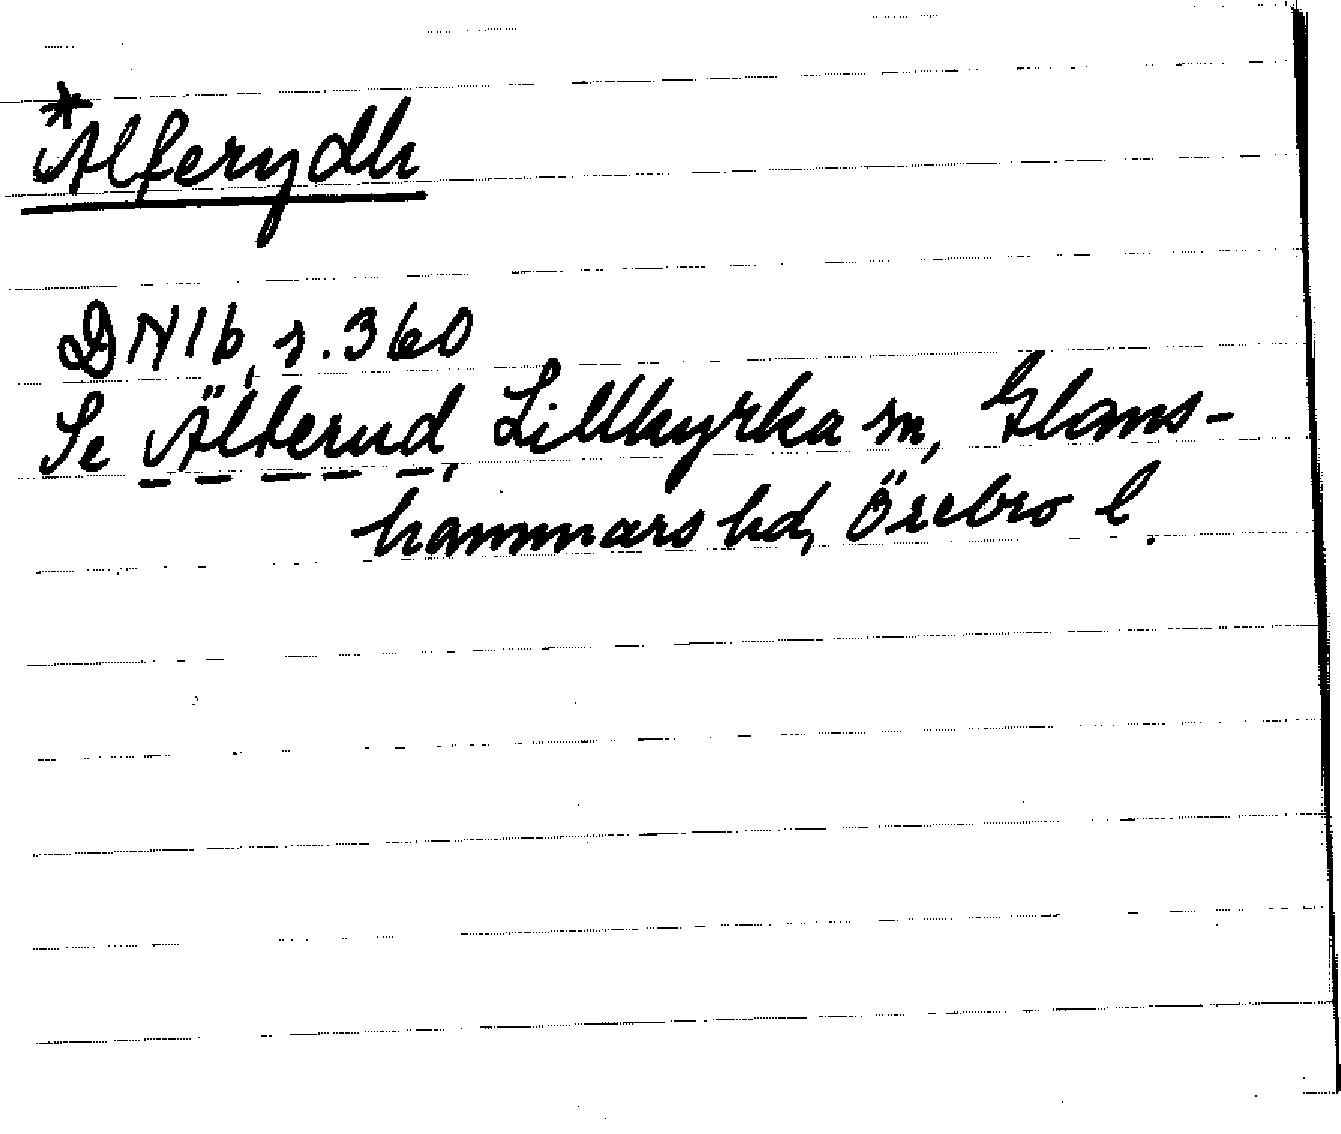 *Alferydh
DN 1b, s. 360
Se Älterud, Lillkyrka sn, Glans-
hammars hd, Örebro l.